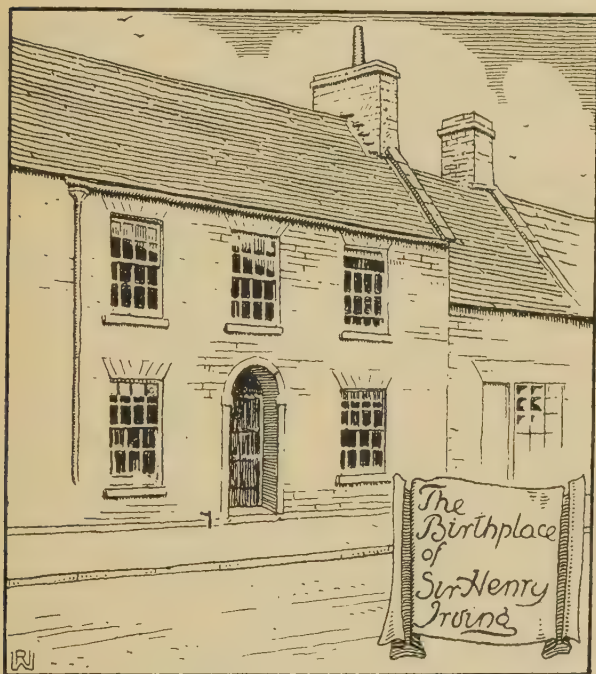 The
Birthplace
of
Sir Henry
Irving